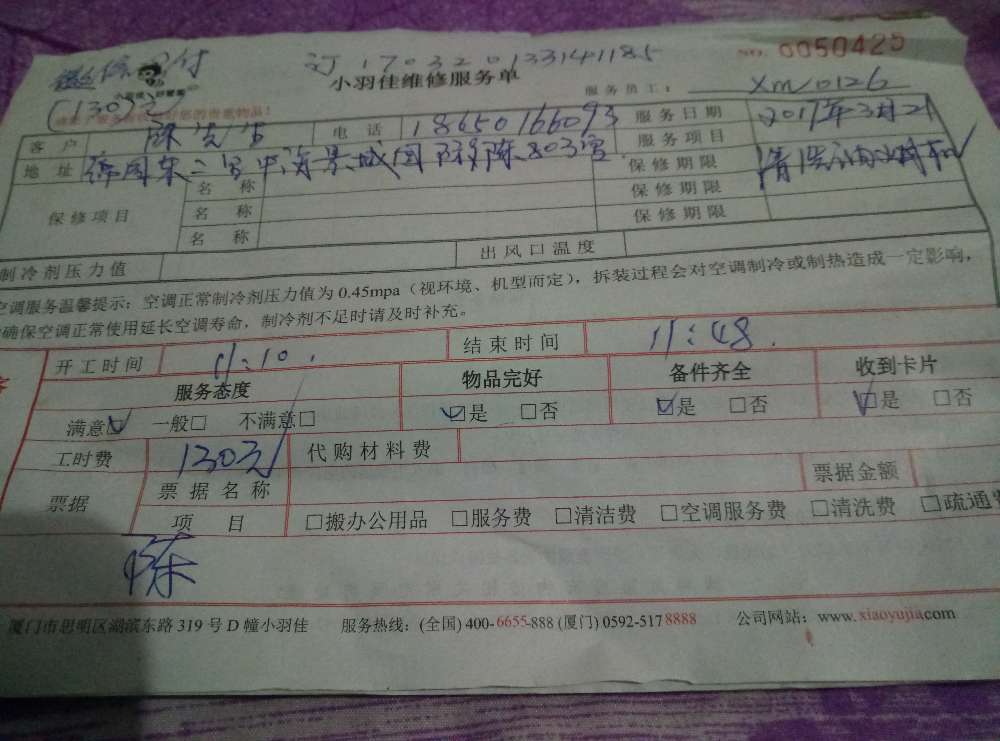 微信支付 订170320133141185
(130元) 小羽佳维修服务单 NO. 0050425
服务员工: xm10126
客户 陈先生 电话 18650166093 服务日期 2017年3月21
地址 803室 服务项目 清洗油烟机
保修项目 名称 保修期限
名称 保修期限
名称 保修期限
制冷剂压力值 出风口温度
空调服务温馨提示：空调正常制冷剂压力值为 0.45mpa（视环境、机型而定），拆装过程会对空调制冷或制热造成一定影响，
确保空调正常使用延长空调寿命，制冷剂不足时请及时补充。
开工时间 11:10. 结束时间 11:48.
服务态度 物品完好 备件齐全 收到卡片
满意☑ 一般□ 不满意□ ☑是 □否 ☑是 □否 ☑是 □否
工时费 130元 代购材料费
票据 票据名称 票据金额
项目 □搬办公用品 □服务费 □清洁费 □空调服务费 □清洗费 □疏通费
陈
厦门市思明区湖滨东路 319 号 D 幢小羽佳 服务热线：(全国) 400-6655-888 (厦门) 0592-5178888 公司网站：www.xiaoyujia.com